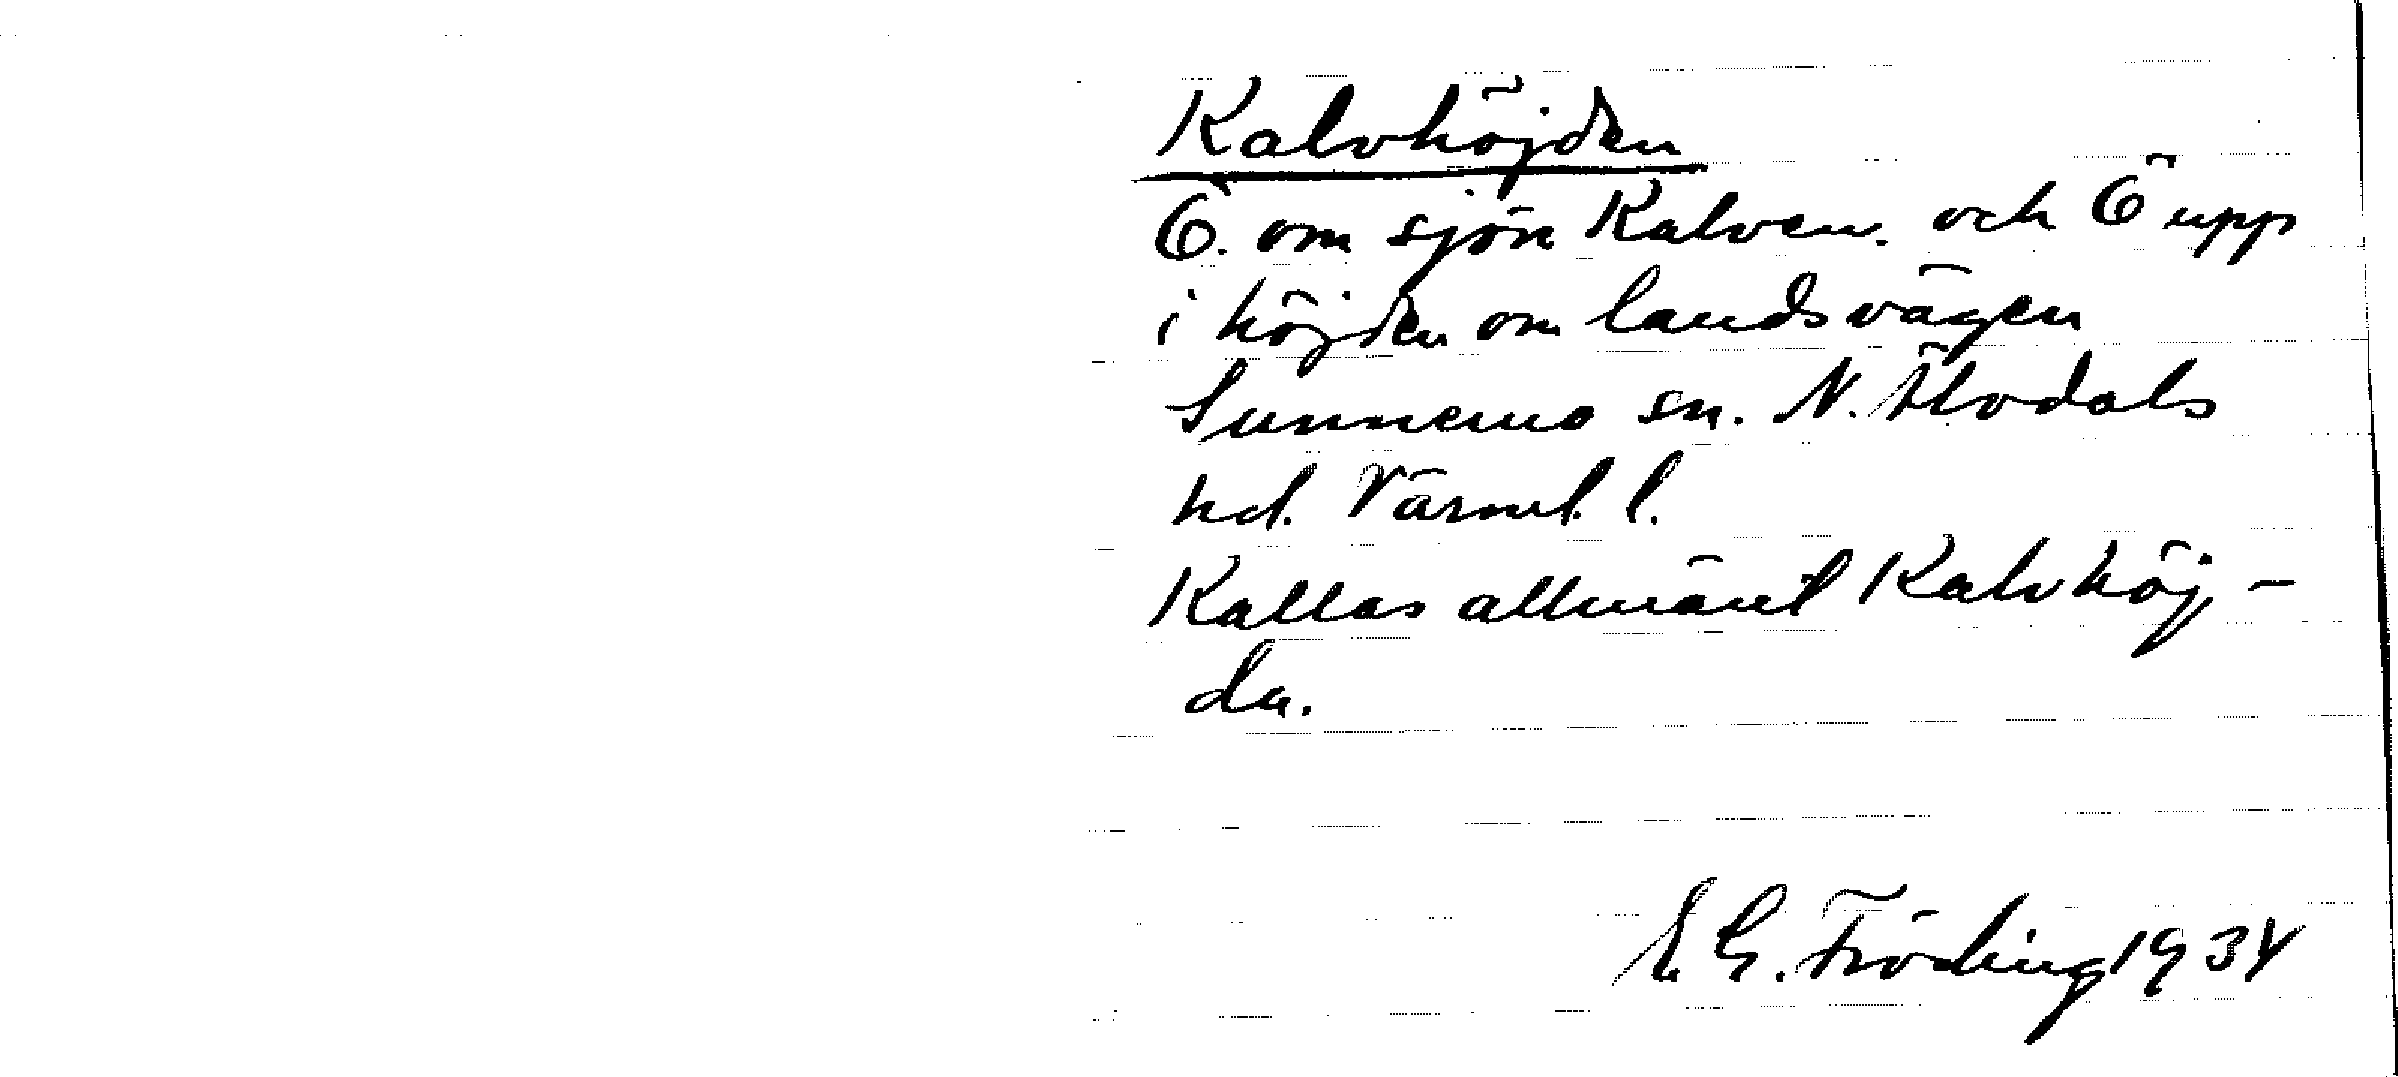 Kalvhöjden
Ö. om sjön Kalven. och Ö upp
i höjden om landsvägen
Sunnemo sn. N. Älvdals
hd. Värml. l.
Kallas allmänt Kalvhöj-
da.
E G. Fröding 1934